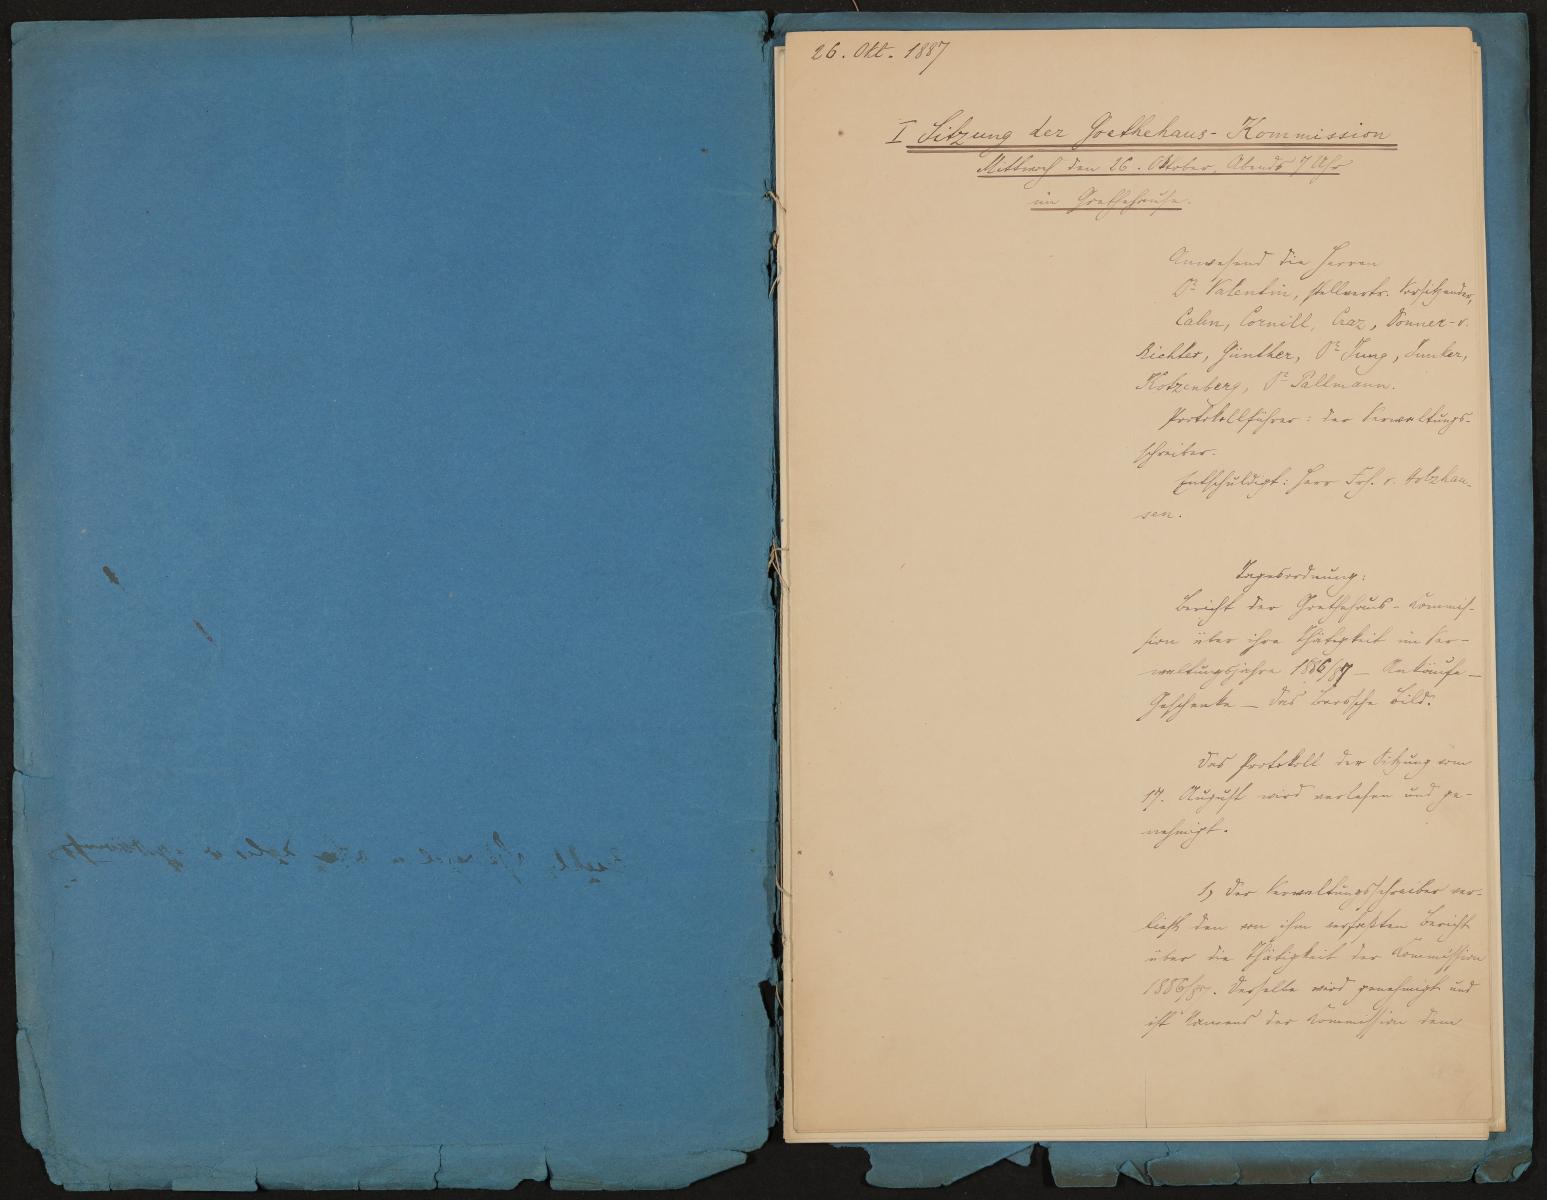 26. Okt. 1887
I Sitzung der Goethehaus-Kommission
Mittwoch den 26. Oktober, Abends 7 Uhr
im Goethehause.
Anwesend die Herren
Dr. Valentin, stellvertr. Vorsitzender,
Cahn, Cornill, Craz, Donner-v.
Richter, Günther, Dr. Jung, Junker,
Kotzenberg, Dr. Pallmann.
Protokollführer: der Verwaltungs-
schreiber.
Entschuldigt: Herr Frh. v. Holzhau-
sen.
Tagesordnung:
Bericht der Goethehaus-Commis-
sion über ihre Thätigkeit im Ver-
waltungsjahre 1886/87 — Ankäufe —
Geschenke — das Bild.
Das Protokoll der Sitzung vom
17. August wird verlesen und ge-
nehmigt.
1, Der Verwaltungsschreiber ver-
liest den von ihm verfaßten Bericht
über die Thätigkeit der Commission
1886/87. Derselbe wird genehmigt und
ist Namens der Commission dem